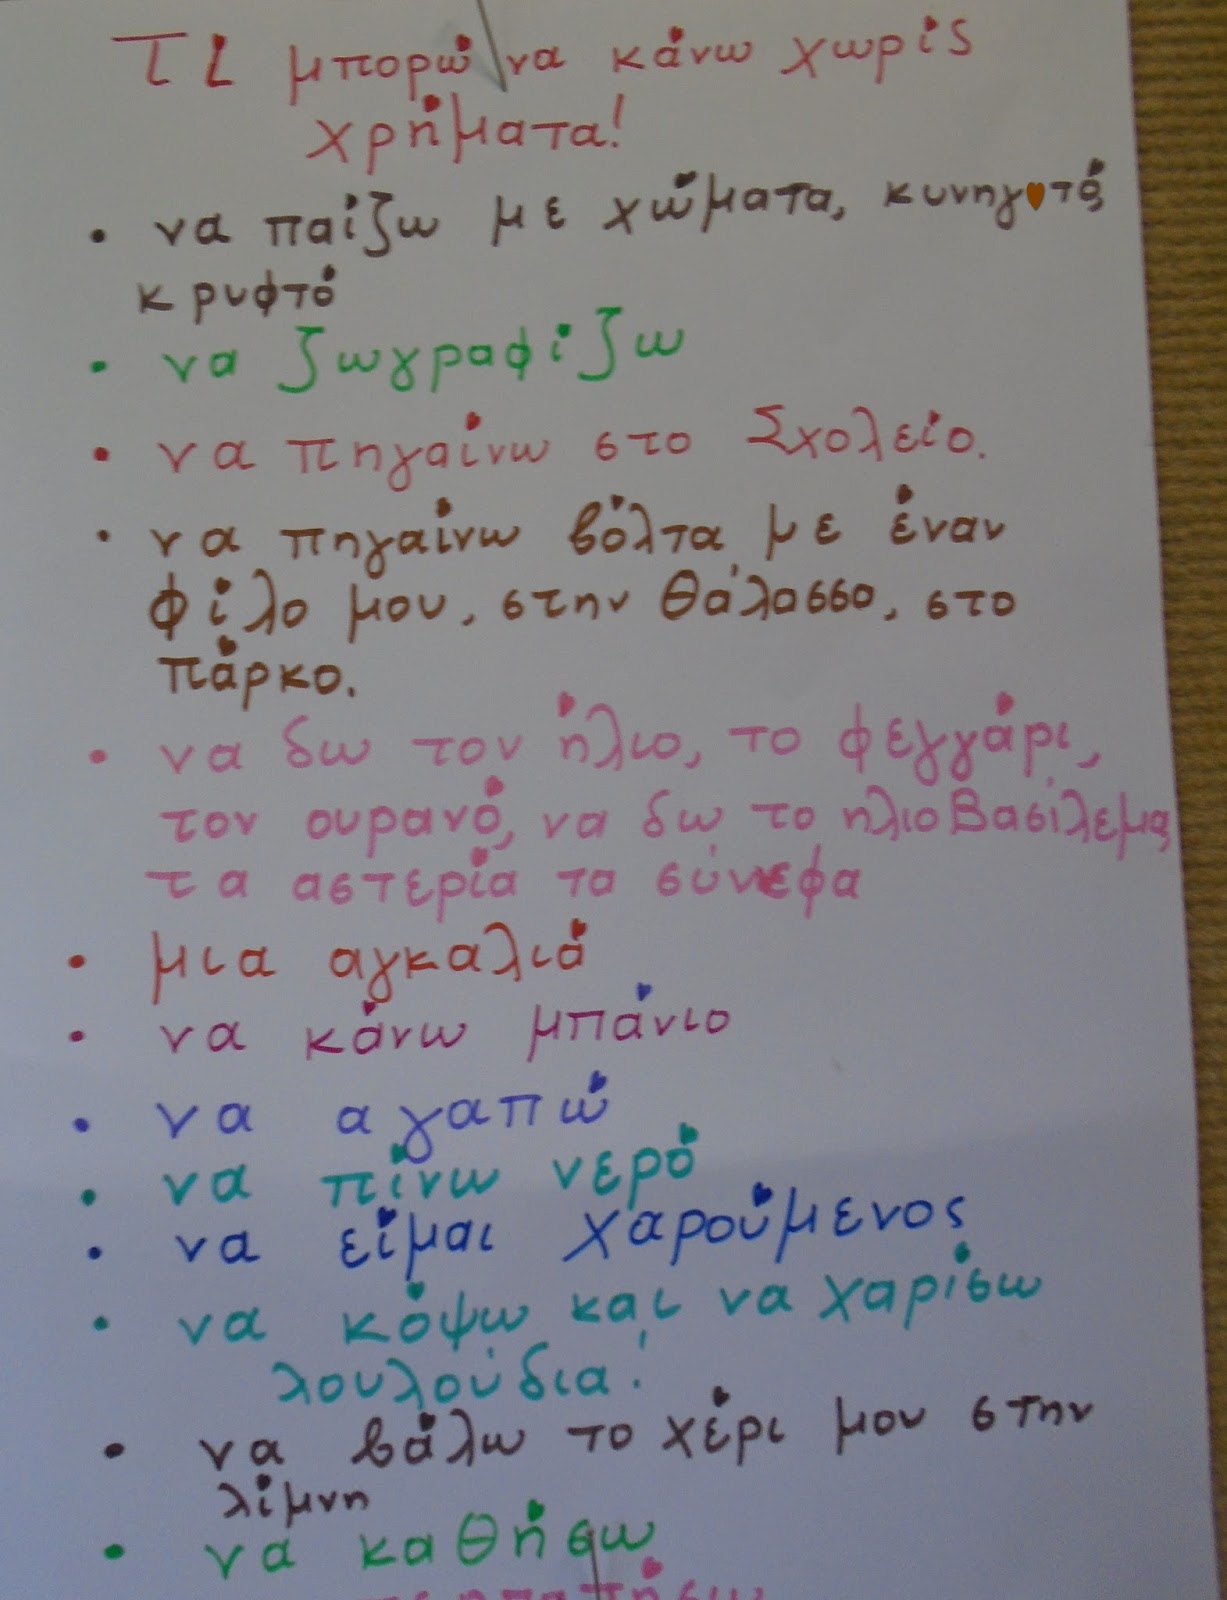 Τι μπορώ να κάνω χωρίς
χρήματα!
• να παίζω με χώματα, κυνηγητό,
κρυφτό
• να ζωγραφίζω
• να πηγαίνω στο Σχολείο.
• να πηγαίνω βόλτα με έναν
φίλο μου, στην θάλασσα, στο
πάρκο.
• να δω τον ήλιο, το φεγγάρι,
τον ουρανό, να δω το ηλιοβασίλεμα,
τα αστερία τα σύνεφα
• μια αγκαλιά
• να κάνω μπάνιο
• να αγαπώ
• να πίνω νερό
• να είμαι χαρούμενος
• να κόψω και να χαρίσω
λουλούδια!
• να βάλω το χέρι μου στην
λίμνη
• να καθήσω